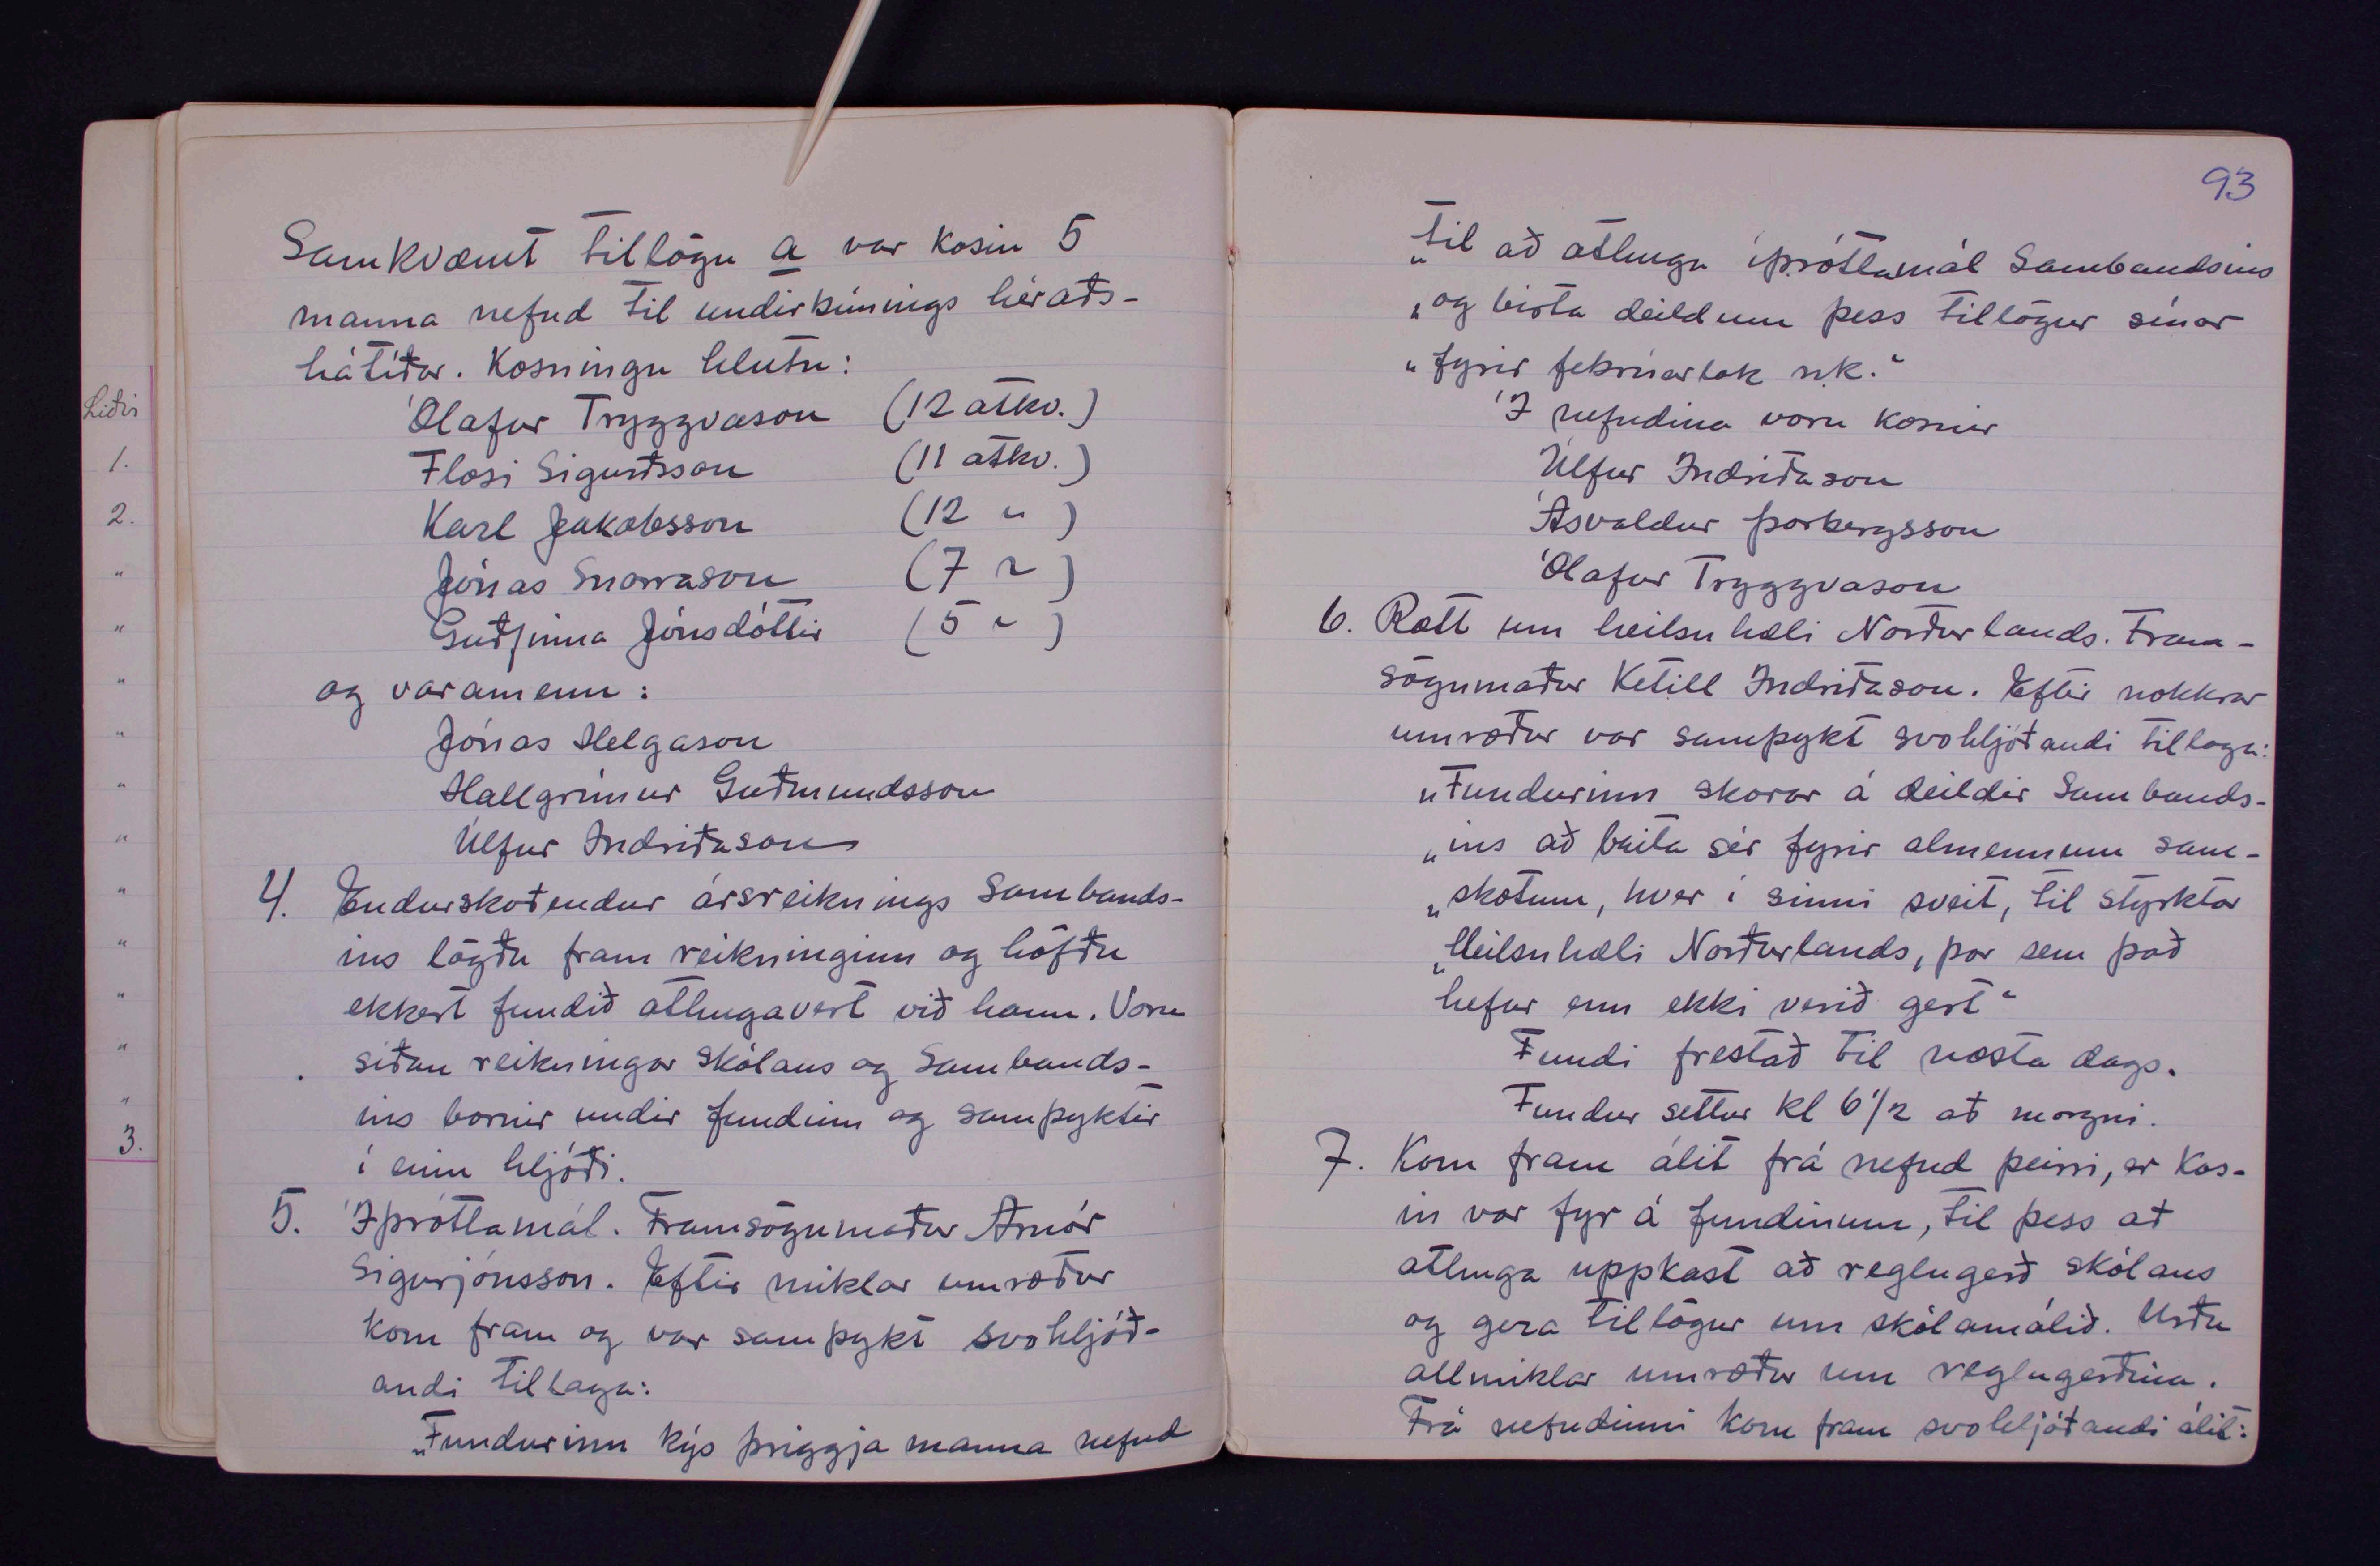 Liðir
1.
2.
"
"
"
"
"
"
"
"
"
"
"
3.
Samkvæmt tillögu a var kosin 5
manna nefnd til undirbúnings héraðs-
hátíðar. Kosningu hlutu:
Ólafur Tryggvason (12 atkv.)
Flosi Sigurðsson (11 atkv.)
Karl Jakobsson (12 " )
Jónas Snorrason (7 " )
Guðfinna Jónsdóttir (5 " )
og varamenn:
Jónas Helgason
Hallgrímur Guðmundsson
Úlfur Indriðason
4. Endurskoðendur ársreiknings Sambands-
ins lögðu fram reikninginn og höfðu
ekkert fundið athugavert við hann. Voru
síðan reikningar skólans og Sambands-
ins bornir undir fundinn og samþyktir
í einu hljóði.
5. Íþróttamál. Framsögumaður Arnór
Sigurjónsson. Eftir miklar umræður
kom fram og var samþykt svohljóð-
andi tillaga:
„Fundurinn kýs þriggja manna nefnd
93
„til að athuga íþróttamál Sambandsins
„og birta deildum þess tillögur sínar
„fyrir febrúarlok n.k."
Í nefndina voru kosnir
Úlfur Indriðason
Ásvaldur Þorbergsson
Ólafur Tryggvason
6. Rætt um heilsuhæli Norðurlands. Fram-
sögumaður Ketill Indriðason. Eftir nokkrar
umræður var samþykt svohljóðandi tillaga:
„Fundurinn skorar á deildir Sambands-
„ins að beita sér fyrir almennum sam-
„skotum, hver í sinni sveit, til styrktar
„Heilsuhæli Norðurlands, þar sem það
hefur enn ekki verið gert"
Fundi frestað til næsta dags.
Fundur settur kl 6 1/2 að morgni.
7. Kom fram álit frá nefnd þeirri, er kos-
in var fyr á fundinum, til þess að
athuga uppkast að reglugerð skólans
og gera tillögur um skólamálið. Urðu
allmiklar umræður um reglugerðina.
Frá nefndinni kom fram svohljóðandi álit: